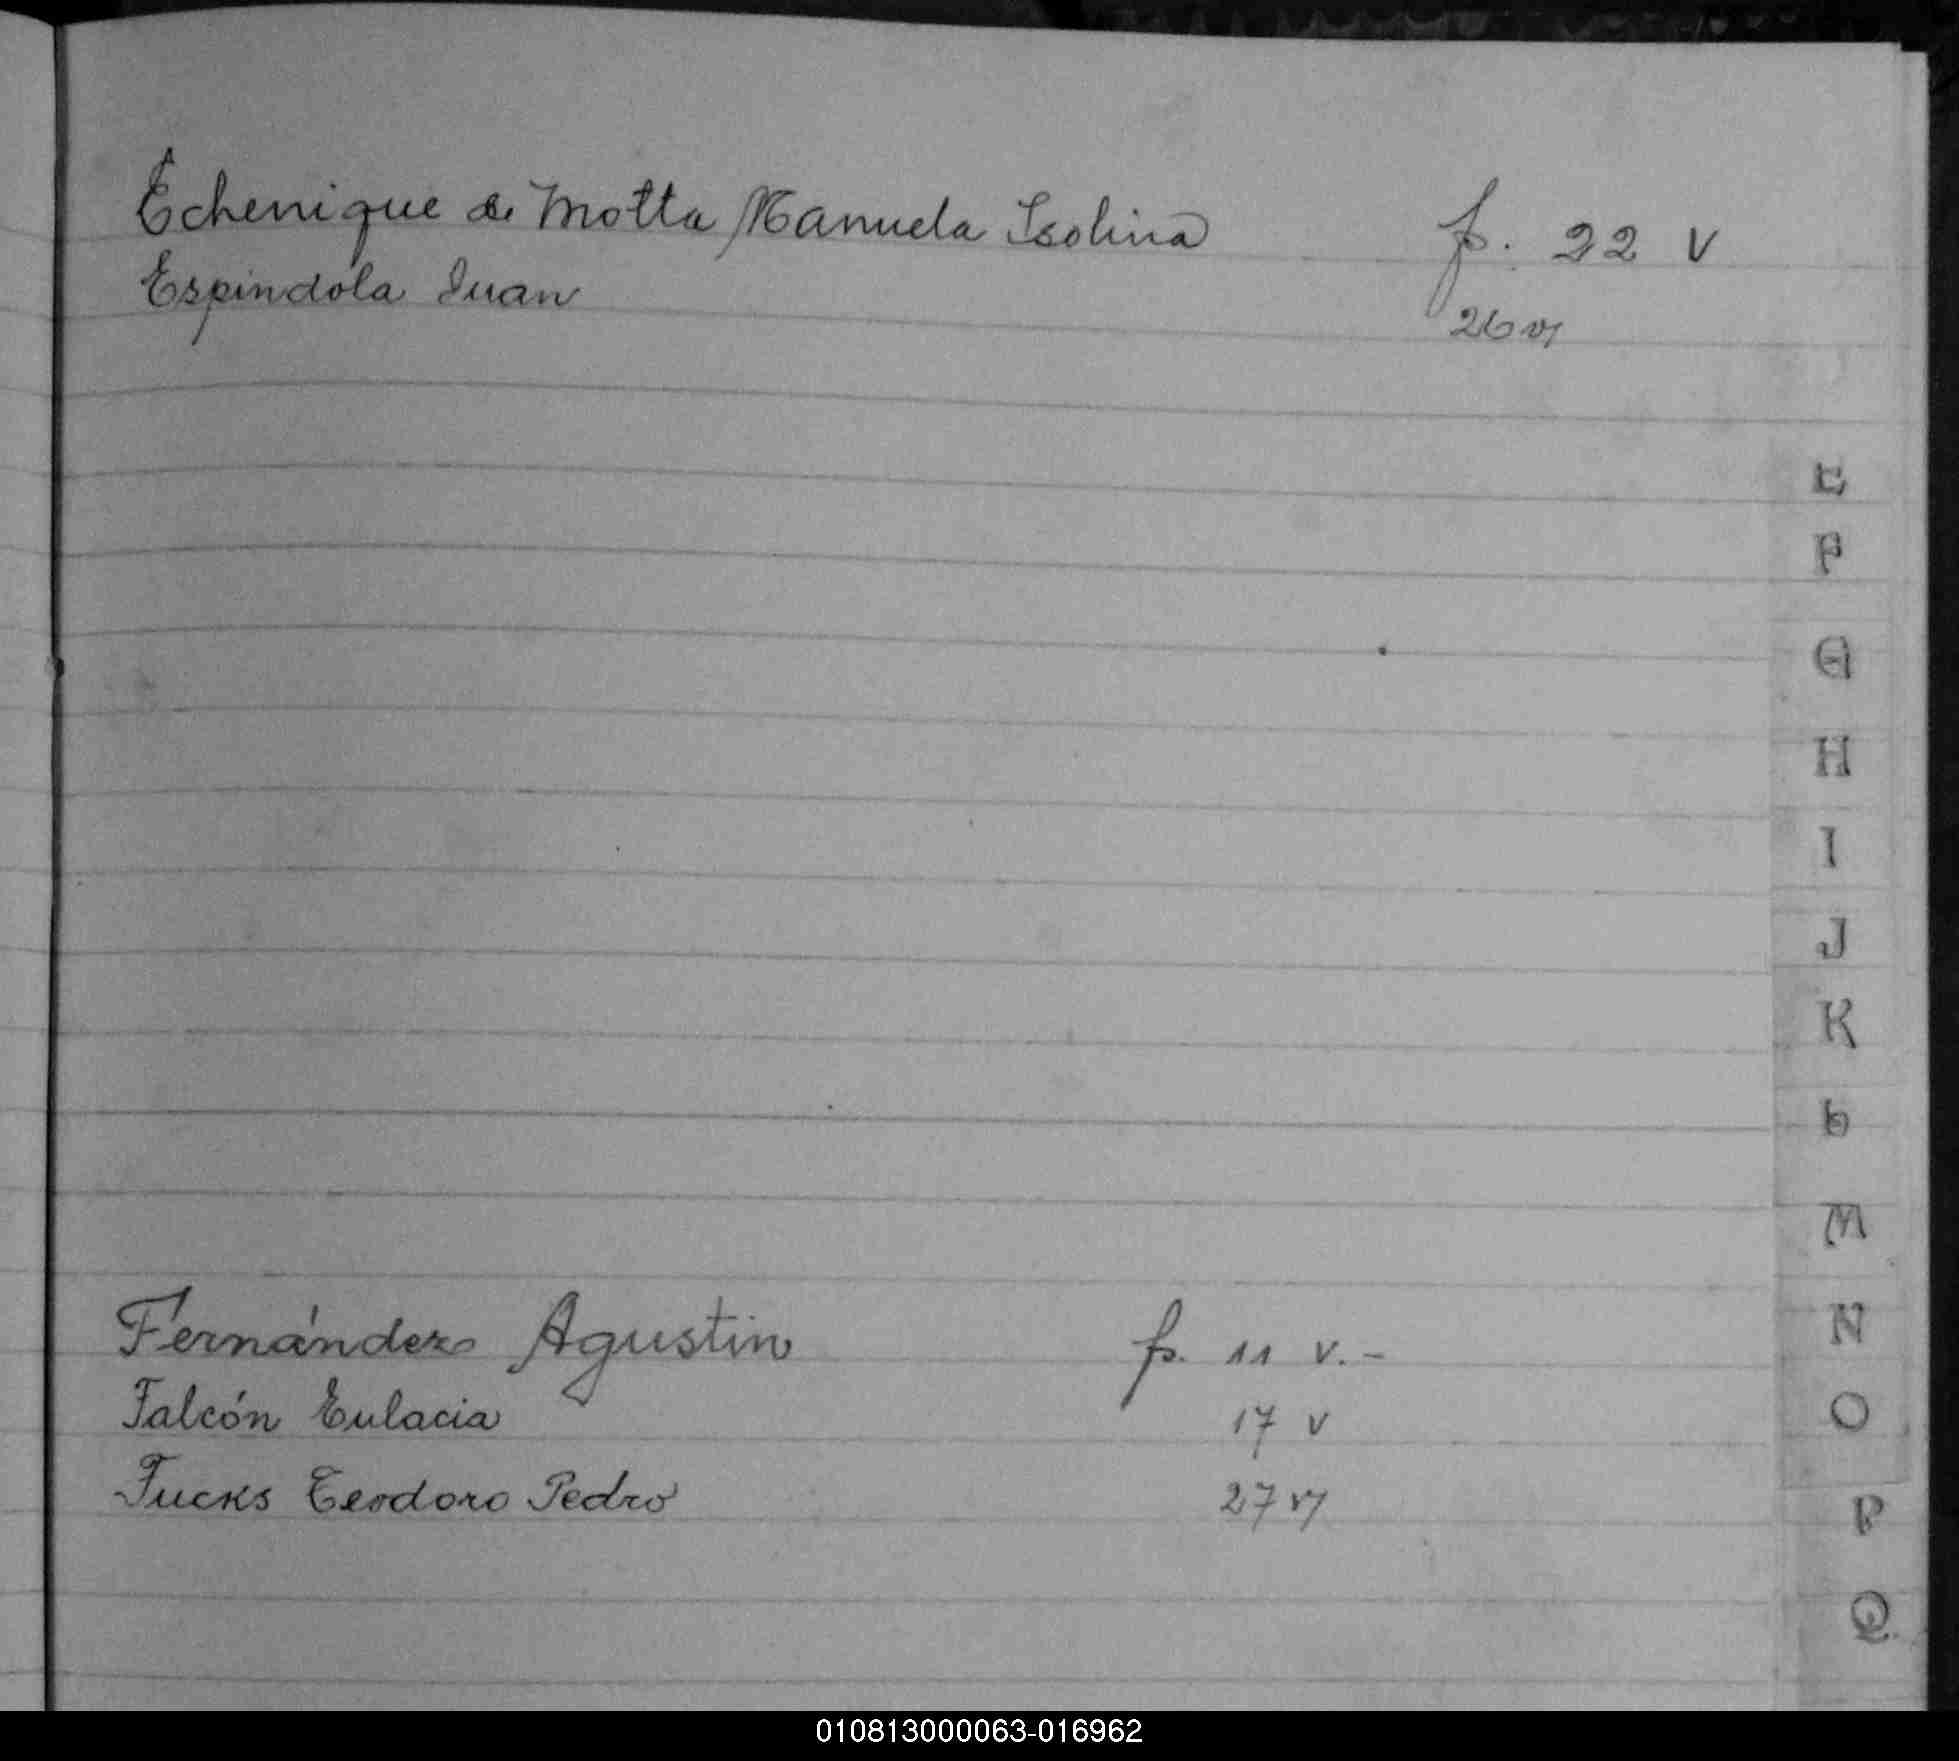 Echenique de Motta Manuela Isolina f. 22 v
Espíndola Juan 26 v
E
F
G
H
I
J
K
L
M
N
Fernández Agustin f. 11 v.-
O
Falcón Eulacia 17 v
Fucks Teodoro Pedro 27 v
P
Q
010813000063-016962